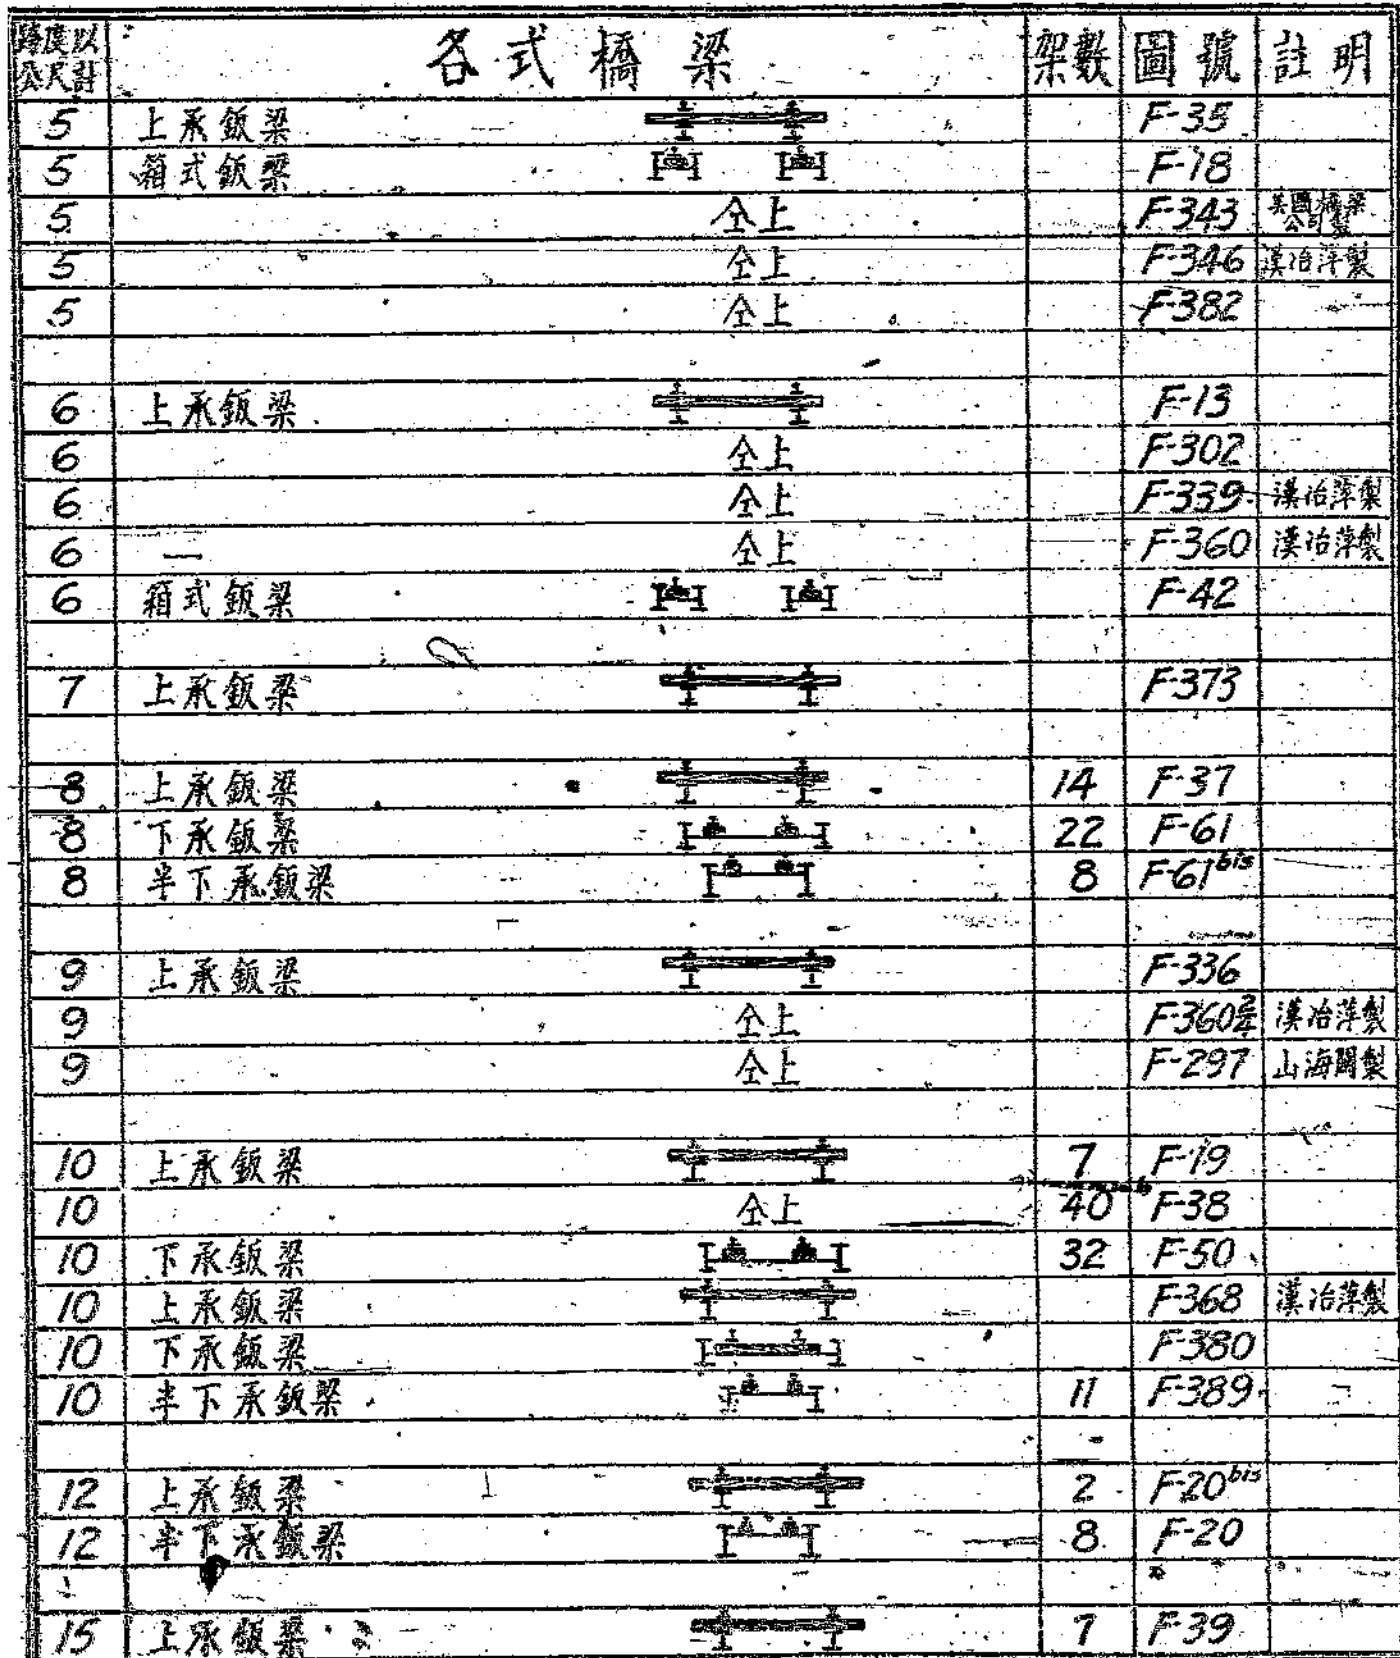 跨度以公尺計 各式橋梁 架數 圖號 註明
5 上承鈑梁 F-35
5 箱式鈑梁 F-18
5 仝上 F-343 美國橋梁公司製
5 仝上 F-346 漢冶萍製
5 仝上 F-382
6 上承鈑梁 F-13
6 仝上 F-302
6 仝上 F-339 漢冶萍製
6 仝上 F-360 漢冶萍製
6 箱式鈑梁 F-42
7 上承鈑梁 F-373
8 上承鈑梁 14 F-37
8 下承鈑梁 22 F-61
8 半下承鈑梁 8 F-61bis
9 上承鈑梁 F-336
9 仝上 F-360 2/4 漢冶萍製
9 仝上 F-297 山海關製
10 上承鈑梁 7 F-19
10 仝上 40 F-38
10 下承鈑梁 32 F-50
10 上承鈑梁 F-368 漢冶萍製
10 下承鈑梁 F-380
10 半下承鈑梁 11 F-389
12 上承鈑梁 2 F-20bis
12 半下承鈑梁 8 F-20
15 上承鈑梁 7 F-39